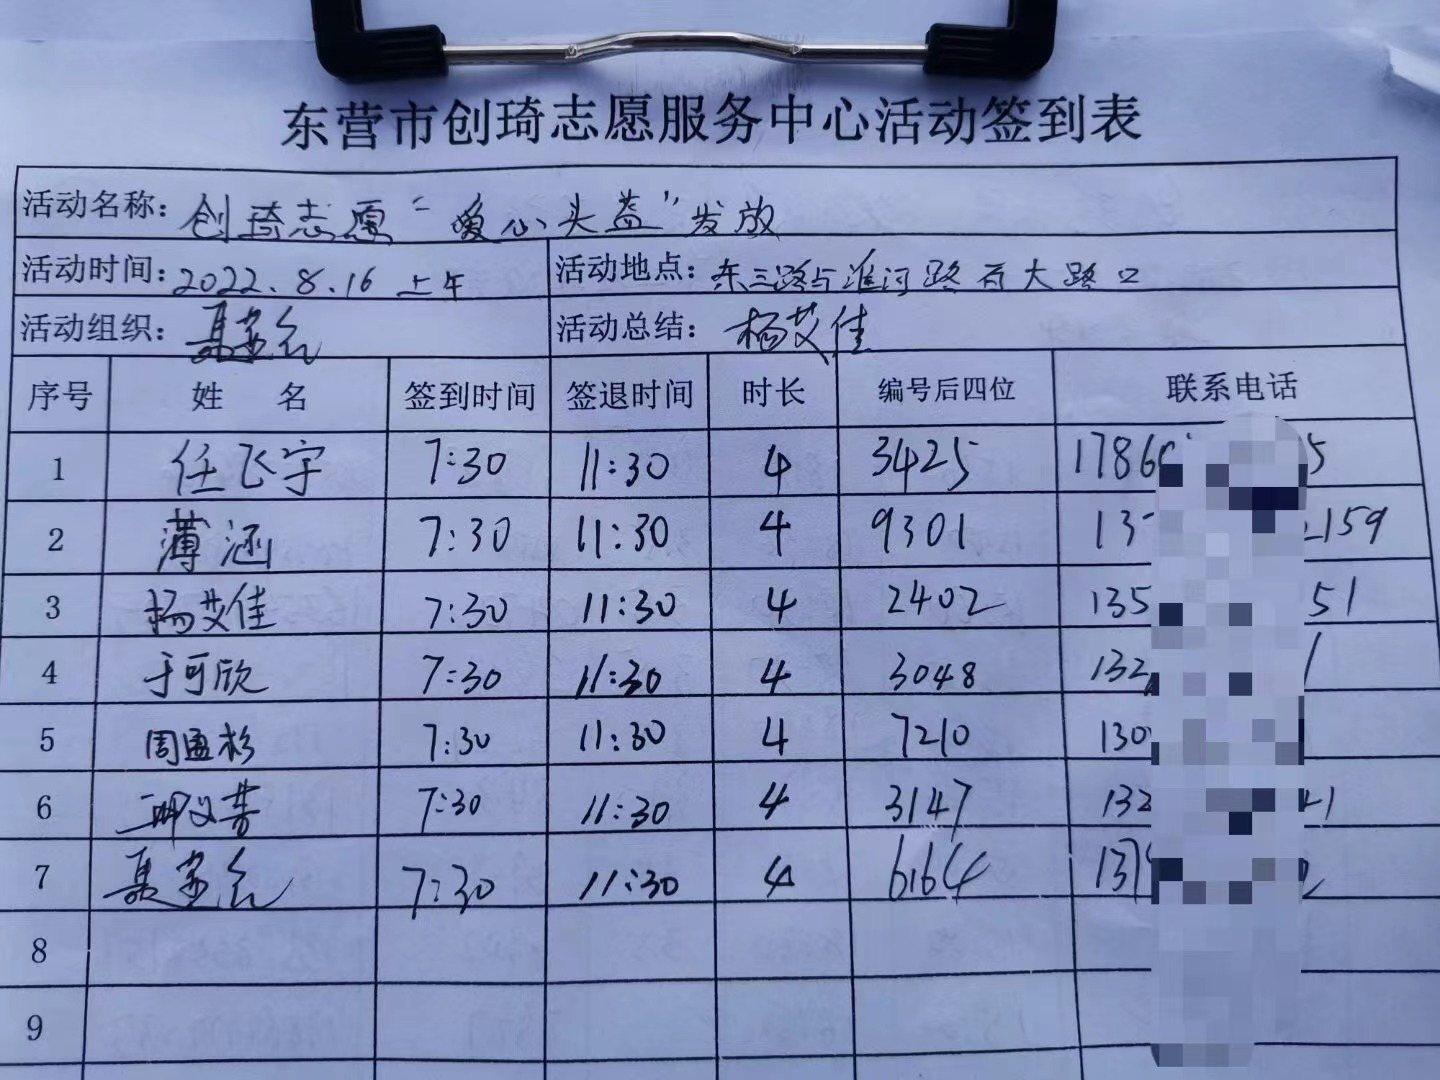 东营市创琦志愿服务中心活动签到表
活动名称：创琦志愿“爱心头盔”发放
活动时间：2022.8.16 上午 活动地点：东三路与淮河路 大路口
活动组织： 活动总结：杨艾佳
序号 姓 名 签到时间 签退时间 时长 编号后四位 联系电话
1 任飞宇 7:30 11:30 4 3425 1786 5
2 薄涵 7:30 11:30 4 9301 13 159
3 杨艾佳 7:30 11:30 4 2402 135 51
4 于可欣 7:30 11:30 4 3048 132 1
5 周盈杉 7:30 11:30 4 7210 130
6 7:30 11:30 4 3147 132 1
7 7:30 11:30 4 6164 137 2
8
9